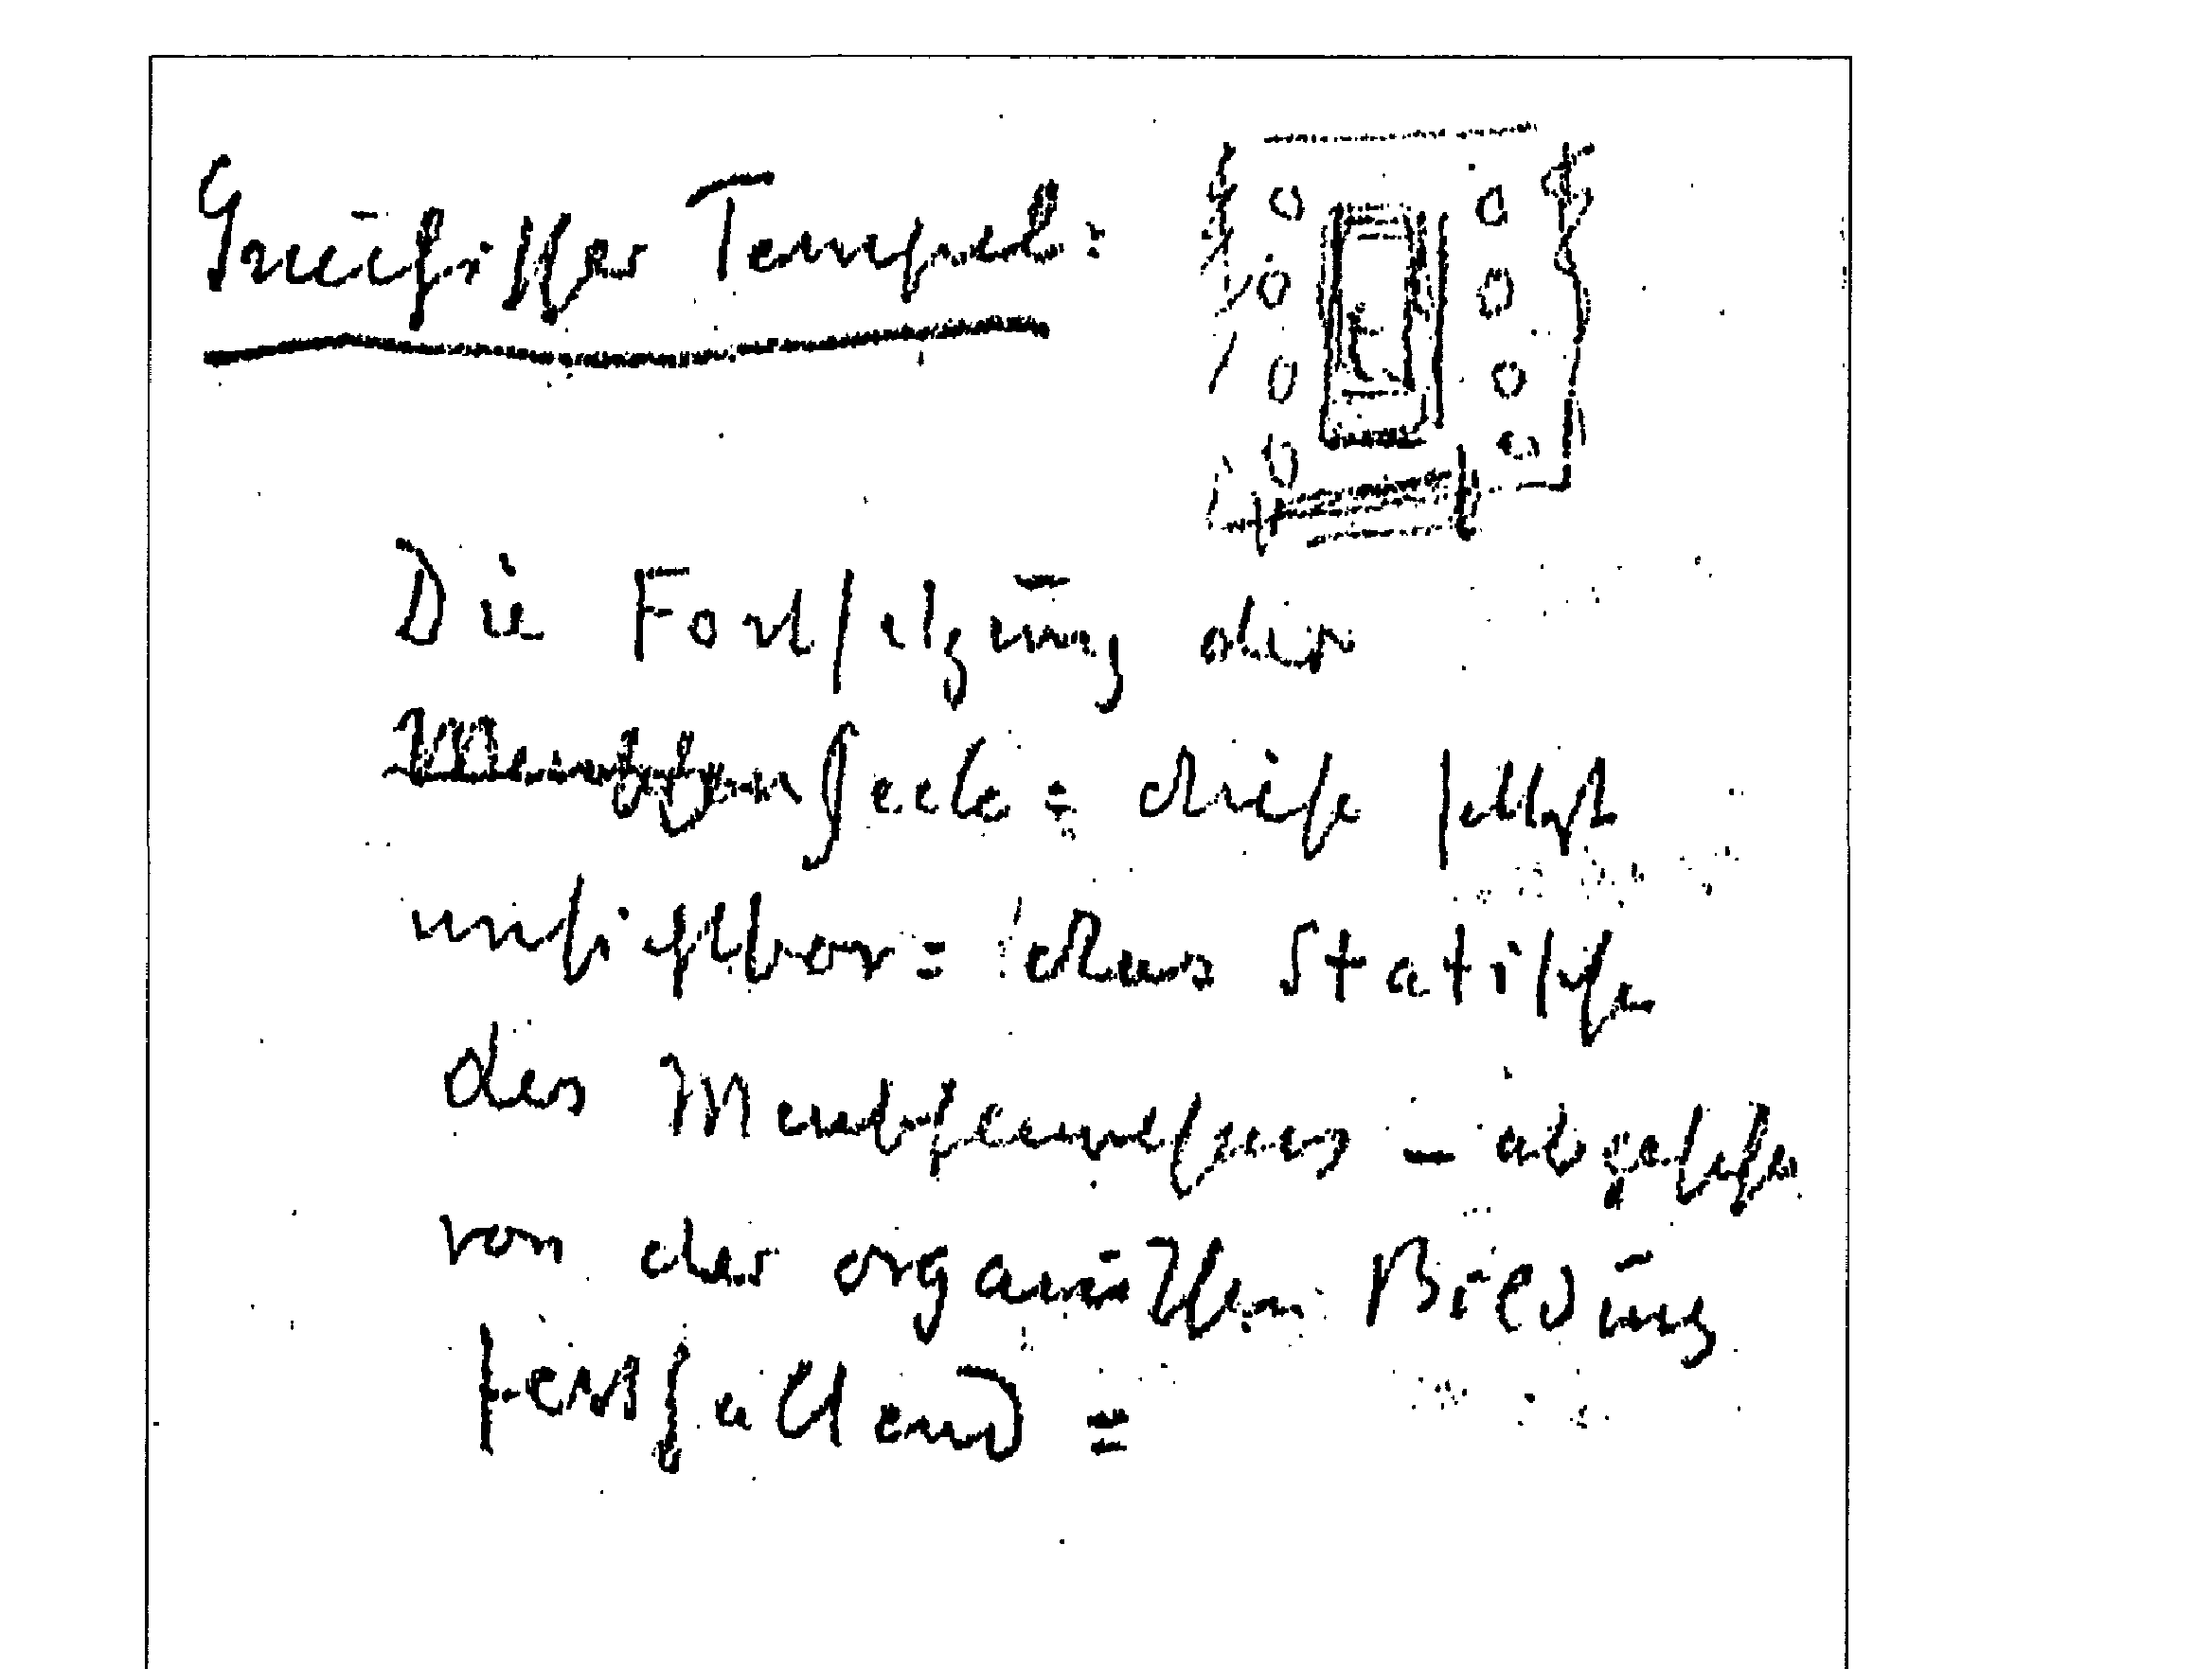 Griechischer Tempel:
Die Fortsetzung der
Menschenseele = diese selbst
unsichtbar = das Statische
des Menschenwesens - abgesehen
von der organischen Bildung
festhaltend =